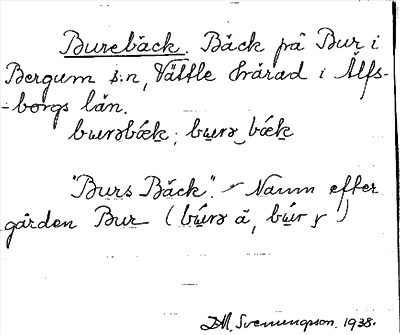 Burebäck. Bäck på Bur i
Bergum s:n, Vättle härad i Älfs-
-borgs län.
bɯrəbǽk ; bɯrə bǽk
"Burs Bäck". – Namn efter
gården Bur (bɯ́rə å, bɯ́r )
D.M. Svenungsson. 1938.